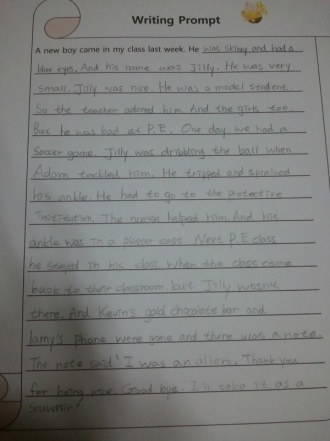 Writing Prompt
A new boy came in my class last week. He was skinny and had a
blue eyes. And his name was Jilly. He was very
small. Jilly was nice. He was a model student
So the teacher adored him. And the girls too.
But he was bad at P.E. One day we had a
Soccer game. Jilly was dribling the ball when
Adam tackled him. He tripped and sprained
his ankle. He had to go to the protective
Institution. The nurse helped him. And his
ankle was in a plaster cast. Next P.E class
he stayed in his class. When the class came
back to their classroom. but Jilly wasn't
there. And Kevin's gold chocolate bar and
Jamy's phone were gone and there was a note.
The note said' I was an aliens. Thank you
for being nice. Good bye. I'll take it as a
Souvenir'